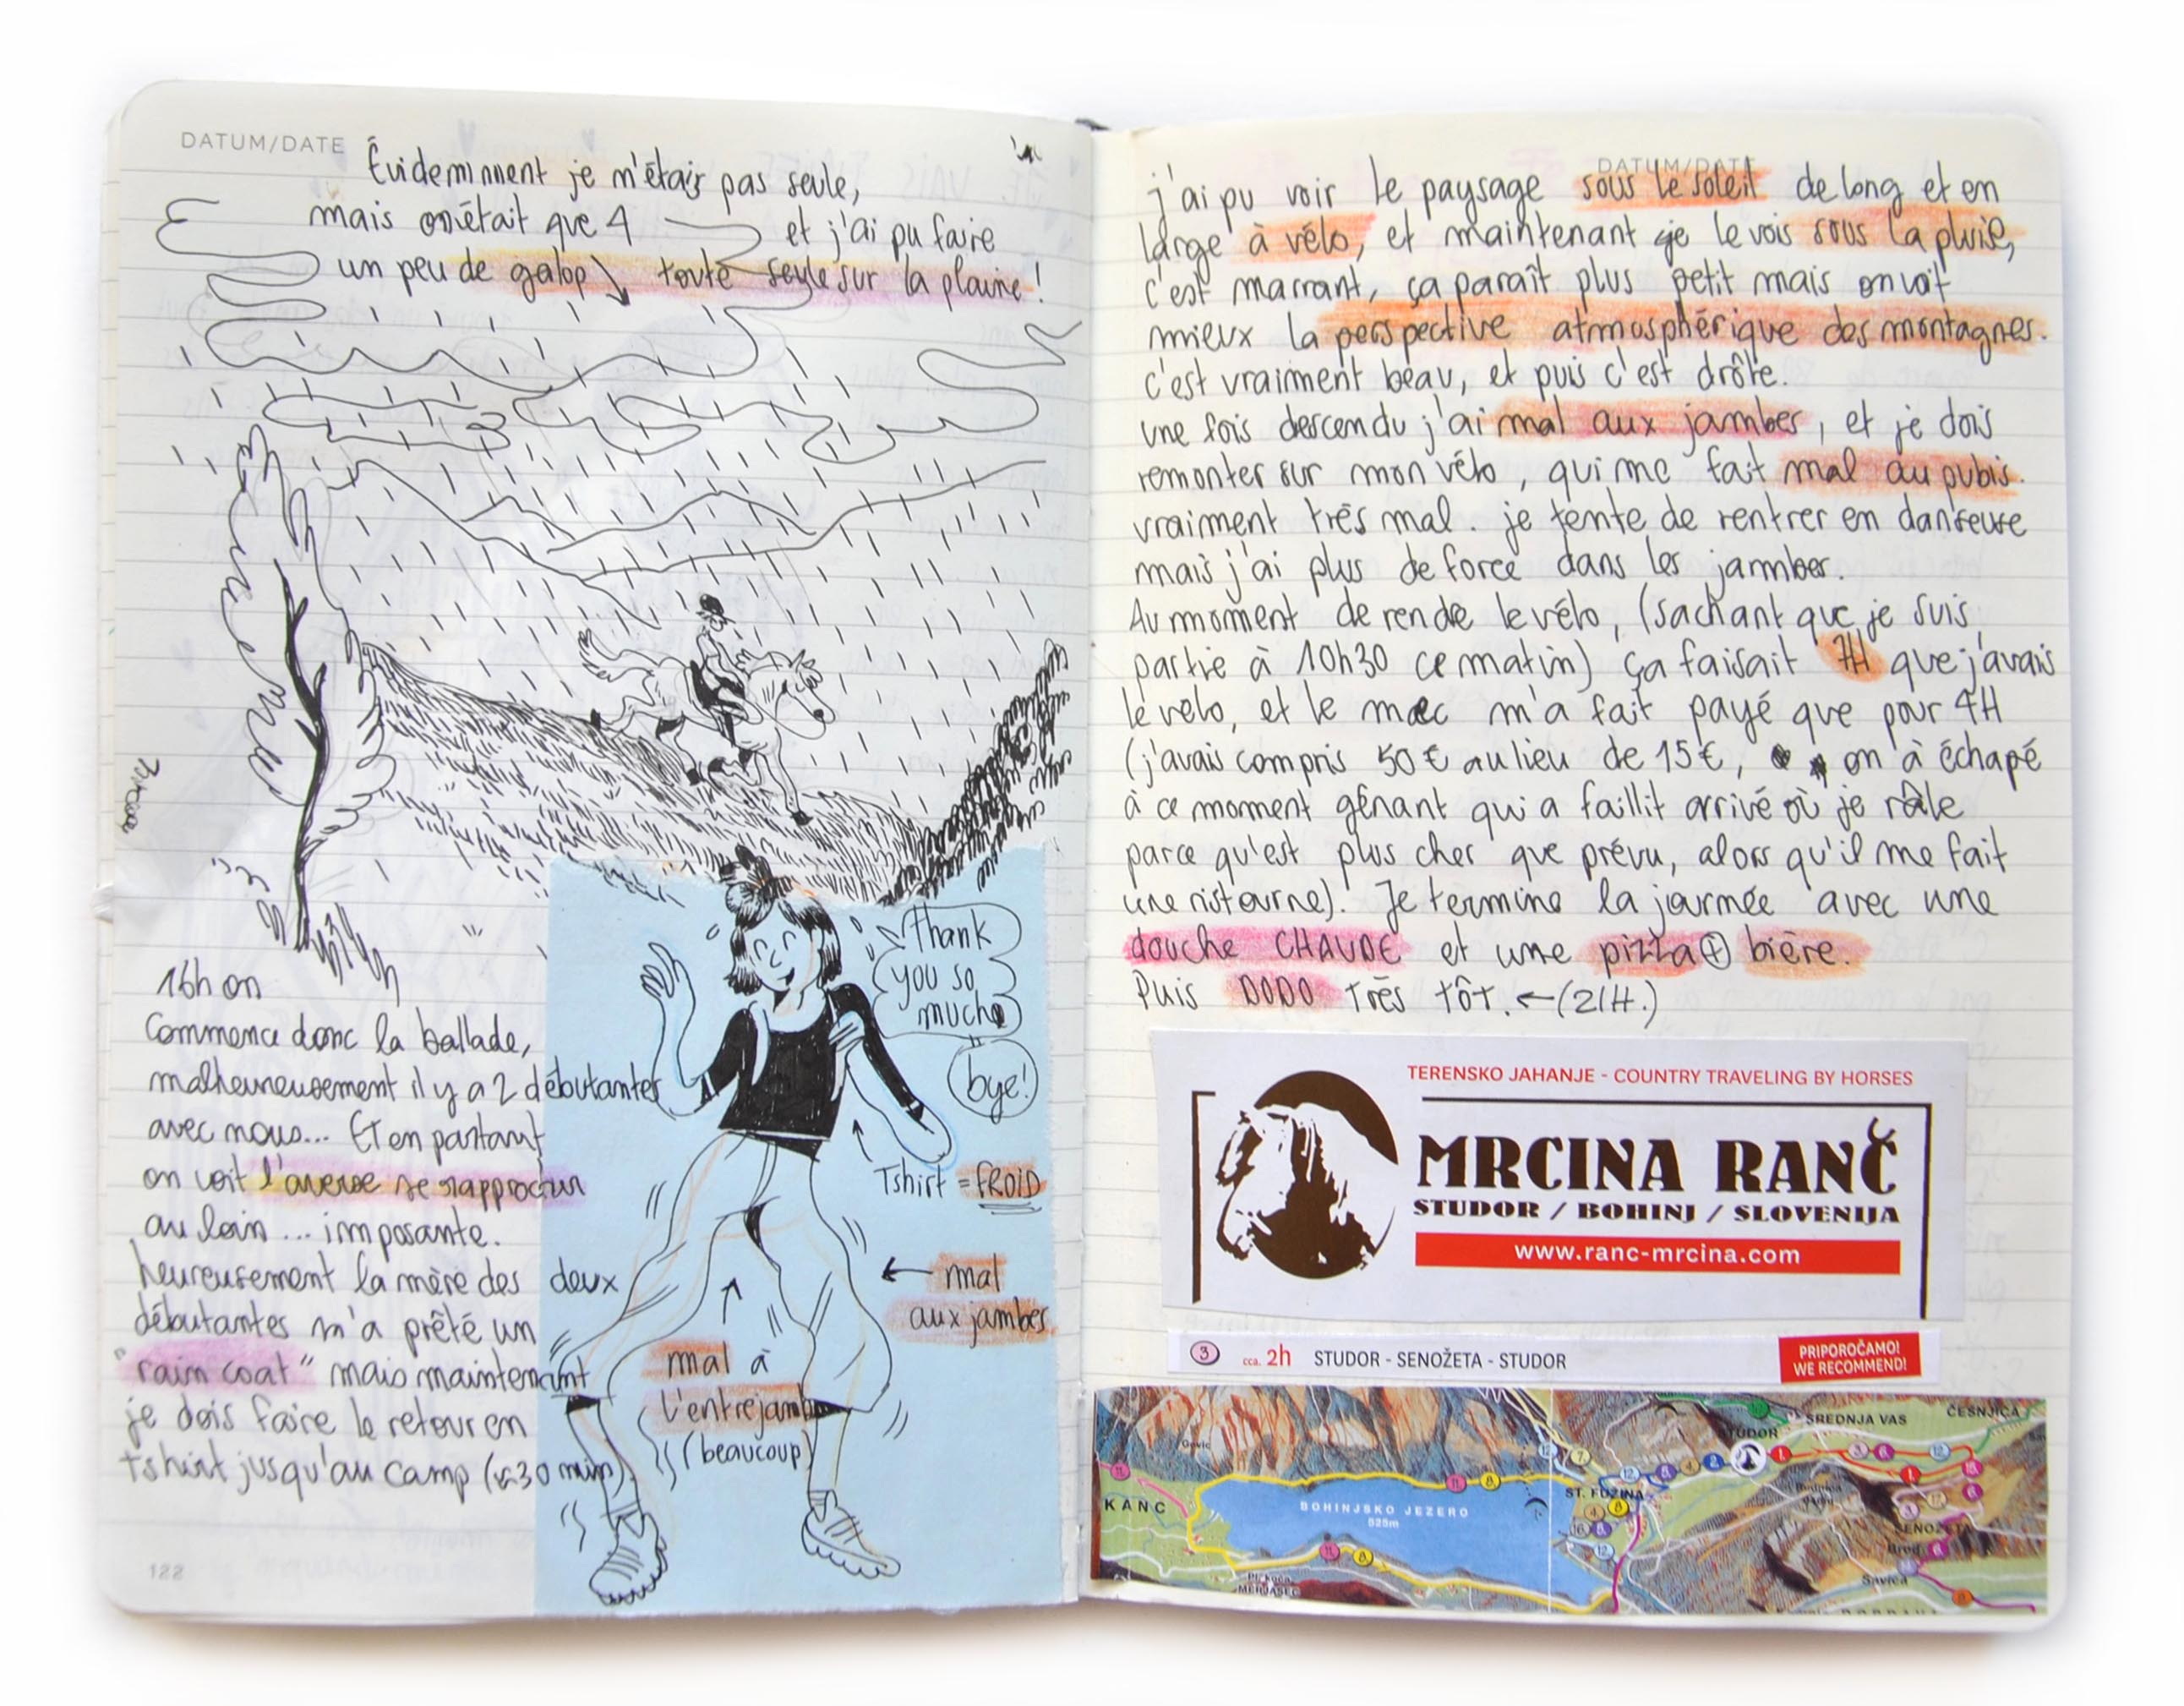 DATUM/DATE
Évidemment je n'étais pas seule,
mais on était que 4 et j'ai pu faire
un peu de galop toute seule sur la plaine !
16h on
commence donc la ballade,
malheureusement il y a 2 débutantes
avec nous... Et en partant
on voit l'averse se rapprocher
au loin... imposante.
heureusement la mère des deux
débutantes m'a prêté un
"rain coat" mais maintenant
je dois faire le retour en
tshirt jusqu'au camp (≈30 min).
122
Thank
you so
much
bye!
Tshirt = FROID
mal
aux jambes
mal à
l'entrejambe
(beaucoup)
DATUM/DATE
j'ai pu voir le paysage sous le soleil de long et en
large à vélo, et maintenant je le vois sous la pluie,
c'est marrant, ça paraît plus petit mais on voit
mieux la perspective atmosphérique des montagnes.
c'est vraiment beau, et puis c'est drôle.
une fois descendu j'ai mal aux jambes, et je dois
remonter sur mon vélo, qui me fait mal au pubis.
vraiment très mal. je tente de rentrer en danseuse
mais j'ai plus de force dans les jambes.
Au moment de rende le vélo, (sachant que je suis
partie à 10h30 ce matin) ça faisait 7H que j'avais
le vélo, et le mec m'a fait payé que pour 4H
(j'avais compris 50€ au lieu de 15€, on à échapé
à ce moment gênant qui a faillit arrivé où je râle
parce qu'est plus cher que prévu, alors qu'il me fait
une ristourne). Je termine la journée avec une
douche CHAUDE et une pizza + bière.
Puis DODO très tôt. ← (21H.)
TERENSKO JAHANJE - COUNTRY TRAVELING BY HORSES
MRCINA RANČ
STUDOR / BOHINJ / SLOVENIJA
www.ranc-mrcina.com
3 cca. 2h STUDOR - SENOŽETA - STUDOR
PRIPOROČAMO!
WE RECOMMEND!
SREDNJA VAS
ČEŠNJICA
STUDOR
KANC
ST. FUŽINA
BOHINJSKO JEZERO
525m
SENOŽETA
Brod
Savica